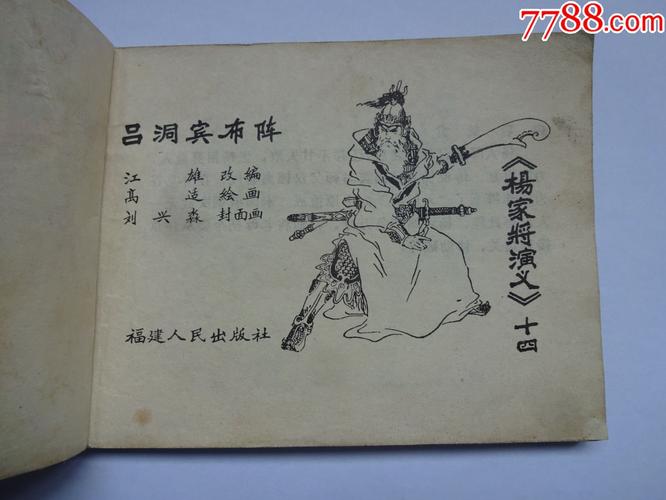 7788.com
吕洞宾布阵
江雄改编
高适绘画
刘兴淼封面画
福建人民出版社
《楊家將演义》十四